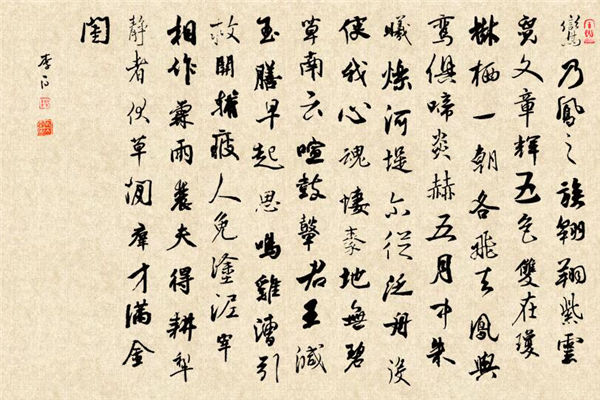 鸞乃鳳之族翱翔紫雲
霓文章輝五色雙在瓊
樹栖一朝各飛去鳳與
鸞俱啼炎赫五月中朱
曦爍河堤尔從泛舟役
使我心魂悽秦地無碧
草南云喧鼓鼙君王減
玉膳早起思鳴雞漕引
救關輔疲人免塗泥宰
相作霖雨農夫得耕犁
靜者伏草間群才滿金
閨
李白